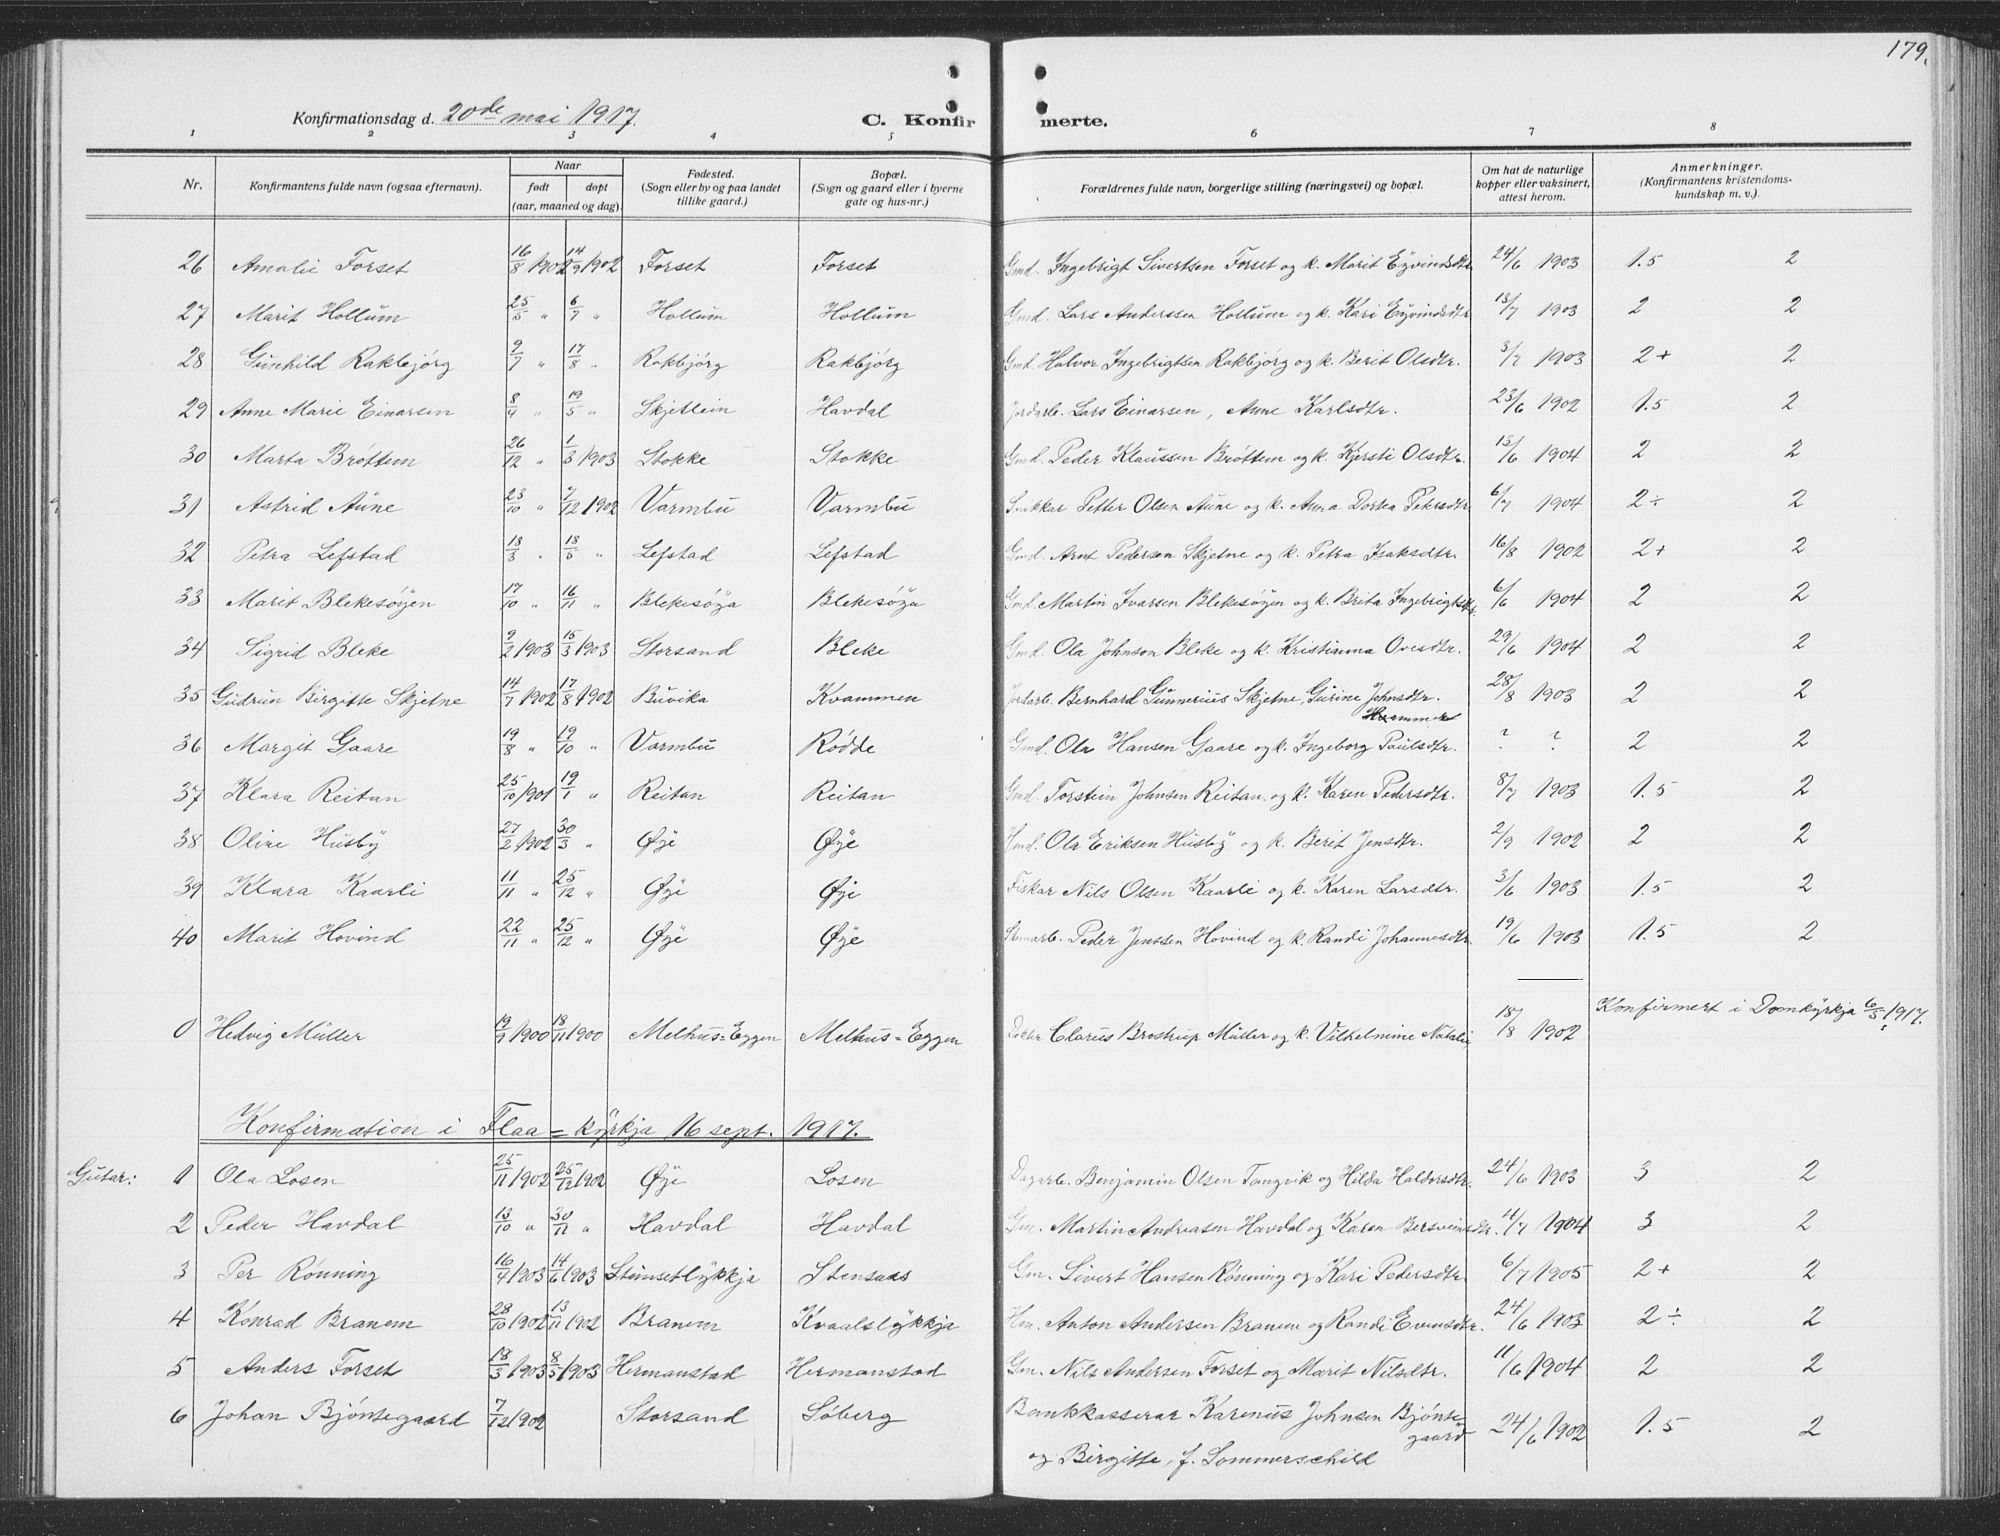 179.
Konfirmationsdag d. 20de mai 1917. C. Konfirmerte.
1 2 3 4 5 6 7 8
Nr. Konfirmantens fulde navn (ogsaa efternavn). Naar født døpt (aar, maaned og dag). Fødested. (Sogn eller by og paa landet tillike gaard.) Bopæl. (Sogn og gaard eller i byerne gate og hus-nr.) Forældrenes fulde navn, borgerlige stilling (næringsvei) og bopæl. Om hat de naturlige kopper eller vaksinert, attest herom. Anmerkninger. (Konfirmantens kristendomskundskap m. v.).
26 Amalie Forset 16/8 1902 14/9 1902 Forset Forset Gmd. Ingebrigt Sivertsen Forset og k. Marit Eyvindsdtr 24/6 1903 1.5 2
27 Marit Hollum 25/5 " 6/7 " Hollum Hollum Gmd. Lars Anderssen Hollum og k. Kari Eyvindsdtr 13/7 1903 2 2
28 Gunhild Rakbjørg 9/7 " 17/8 " Rakbjørg Rakbjørg Gmd. Halvor Ingebrigtsen Rakbjørg og k. Berit Olsdtr. 3/7 1903 2+ 2
29 Anne Marie Einarsen 8/4 " 19/5 " Skjetlein Havdal Jordarb. Lars Einarsen, Anne Karlsdtr. 23/6 1902 1.5 2
30 Marta Brøttem 26/12 " 1/3 1903 Stokke Stokke Gmd. Peder Klaussen Brøttem og k. Kjersti Olsdtr. 13/6 1904 2 2
31 Astrid Aune 23/10 " 7/12 1902 Varmbu Varmbu Snikkar Petter Olsen Aune og k. Anna Dortea Petersdtr 6/7 1904 2÷ 2
32 Petra Lefstad 13/3 " 18/5 " Lefstad Lefstad Gmd. Arnt Pedersen Skjetne og k. Petra Isaksdtr. 16/8 1902 2+ 2
33 Marit Blekesøyen 17/10 " 16/11 " Blekesøya Blekesøya Gmd. Martin Ivarsen Blekesøyen og k. Brita Ingebrigtsdtr. 6/6 1904 2 2
34 Sigrid Bleke 9/2 1903 15/3 1903 Storsand Bleke Gmd. Ola Johnson Bleke og k. Kristianna Ovesdtr. 29/6 1904 2 2
35 Gudrun Birgitte Skjetne 14/7 1902 17/8 1902 Buvika Kvammen Jordarb. Bernhard Gunnerius Skjetne, Gurine Johnsdtr. 28/8 1903 2 2
36 Margit Gaare 19/8 " 19/10 " Varmbu Rødde Gmd. Ola Hansen Gaare og k. Ingeborg Paulsdtr. ? ? 2 2
37 Klara Reitan 25/10 1901 19/1 " Reitan Reitan Gmd. Torstein Johnsen Reitan og k. Karen Pedersdtr. 8/7 1903 1.5 2
38 Oline Husby 27/2 1902 30/3 " Øye Øye Hmd. Ola Eriksen Husby og k. Berit Jensdtr. 2/9 1902 2 2
39 Klara Kaarli 11/11 " 25/12 " Øye Øye Fiskar Nils Olsen Kaarli og k. Karen Larsdtr. 3/6 1903 1.5 2
40 Marit Hovind 22/11 " 25/12 " Øye Øye Peder Jenssen Hovind og k. Randi Johannesdtr. 19/6 1903 1.5 2
0 Hedvig Müller 19/9 1900 18/11 1900 Melhus=Eggen Melhus=Eggen Dokter Clarus Brostrup Müller og k. Vilhelmine Natalie 18/8 1902 Konfirmert i Domkyrkja 6/5 1917.
Konfirmation i Flaa=kyrkja 16 sept. 1917.
Gutar: 1 Ola Losen 25/11 1902 25/12 1902 Øye Losen Dagarb. Benjamin Olsen Tangvik og Hilda Haldorsdtr. 24/6 1903 3 2
2 Peder Havdal 13/10 " 30/11 " Havdal Havdal Gm. Martin Andreasen Havdal og Karen Bersveinsdtr. 11/7 1904 3 2
3 Per Rønning 16/4 1903 14/6 1903 Steinsetlykkja Stensaas Gm. Sivert Hansen Rønning og Kari Pedersdtr. 6/7 1905 2+ 2
4 Konrad Branem 28/10 1902 13/11 1902 Branem Kvaalslykkja Hm. Anton Andersen Branem og Randi Evensdtr. 24/6 1903 2÷ 2
5 Anders Forset 18/3 1903 8/5 1903 Hermanstad Hermanstad Gm. Nils Andersen Forset og Marit Nilsdtr. 11/6 1904 2 2
6 Johan Bjøntegaard 7/12 1902 Storsand Søberg Bankkasserar Karenus Johnsen Bjøntegaard 24/6 1902 1.5 2
og Birgitte, f. Sommerschild